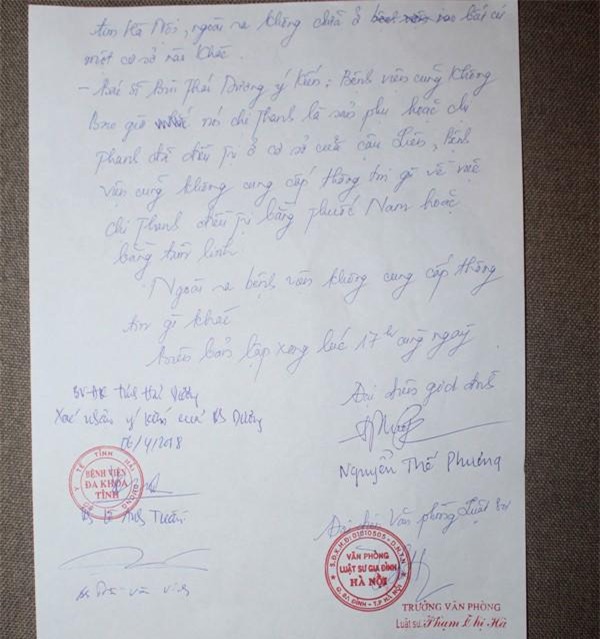 tim Hà Nội, ngoài ra không chữa ở bất cứ
một cơ sở nào khác.
- Bác sĩ Bùi Thái Dương ý kiến: Bệnh viện cũng không
Bao giờ nói chị Thanh là sản phụ hoặc chị
Thanh đã điều trị ở cơ sở của cậu Liên, Bệnh
viện cũng không cung cấp thông tin gì về việc
chị Thanh điều trị bằng thuốc Nam hoặc
bằng tâm linh
Ngoài ra bệnh viện không cung cấp thông
tin gì khác
Biên bản lập xong lúc 17h cùng ngày
BV ĐK tỉnh Hải Dương
Xác nhận ý kiến của BS Dương
06/4/2018
Y TẾ TỈNH HẢI DƯƠNG
BỆNH VIỆN
ĐA KHOA
TỈNH
BS Lê Anh Tuấn
Đại diện gia đình
Nguyễn Thế Phương
Đại diện Văn phòng Luật sư
S.Đ.K.H.Đ: 01010505
VĂN PHÒNG
LUẬT SƯ GIA ĐÌNH
HÀ NỘI
Q. BA ĐÌNH - T.P HÀ NỘI
TRƯỞNG VĂN PHÒNG
Luật sư: Phạm Thị Hà